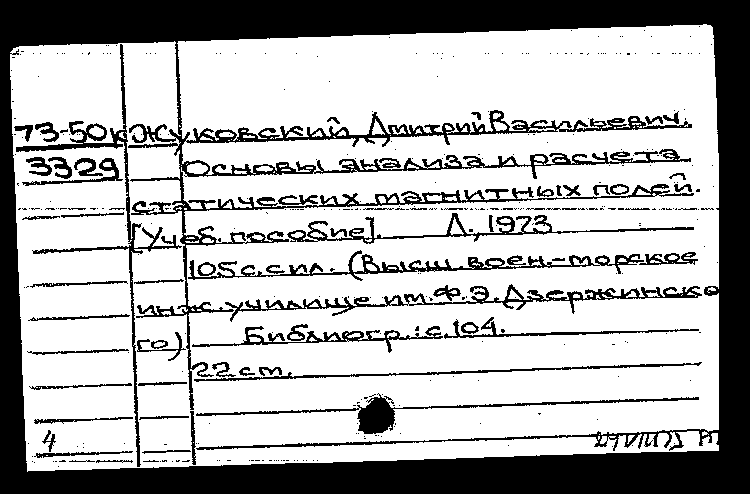 73-50к Жуковский, Дмитрий Васильевич.
3329 Основы анализа и расчета
статических магнитных полей.
[Учеб. пособие]. Л., 1973
105 с. с ил. (Высш. воен.-морское
инж. училище им. Ф. Э. Дзержинско
го) Библиогр.: с. 104.
22 см.
4